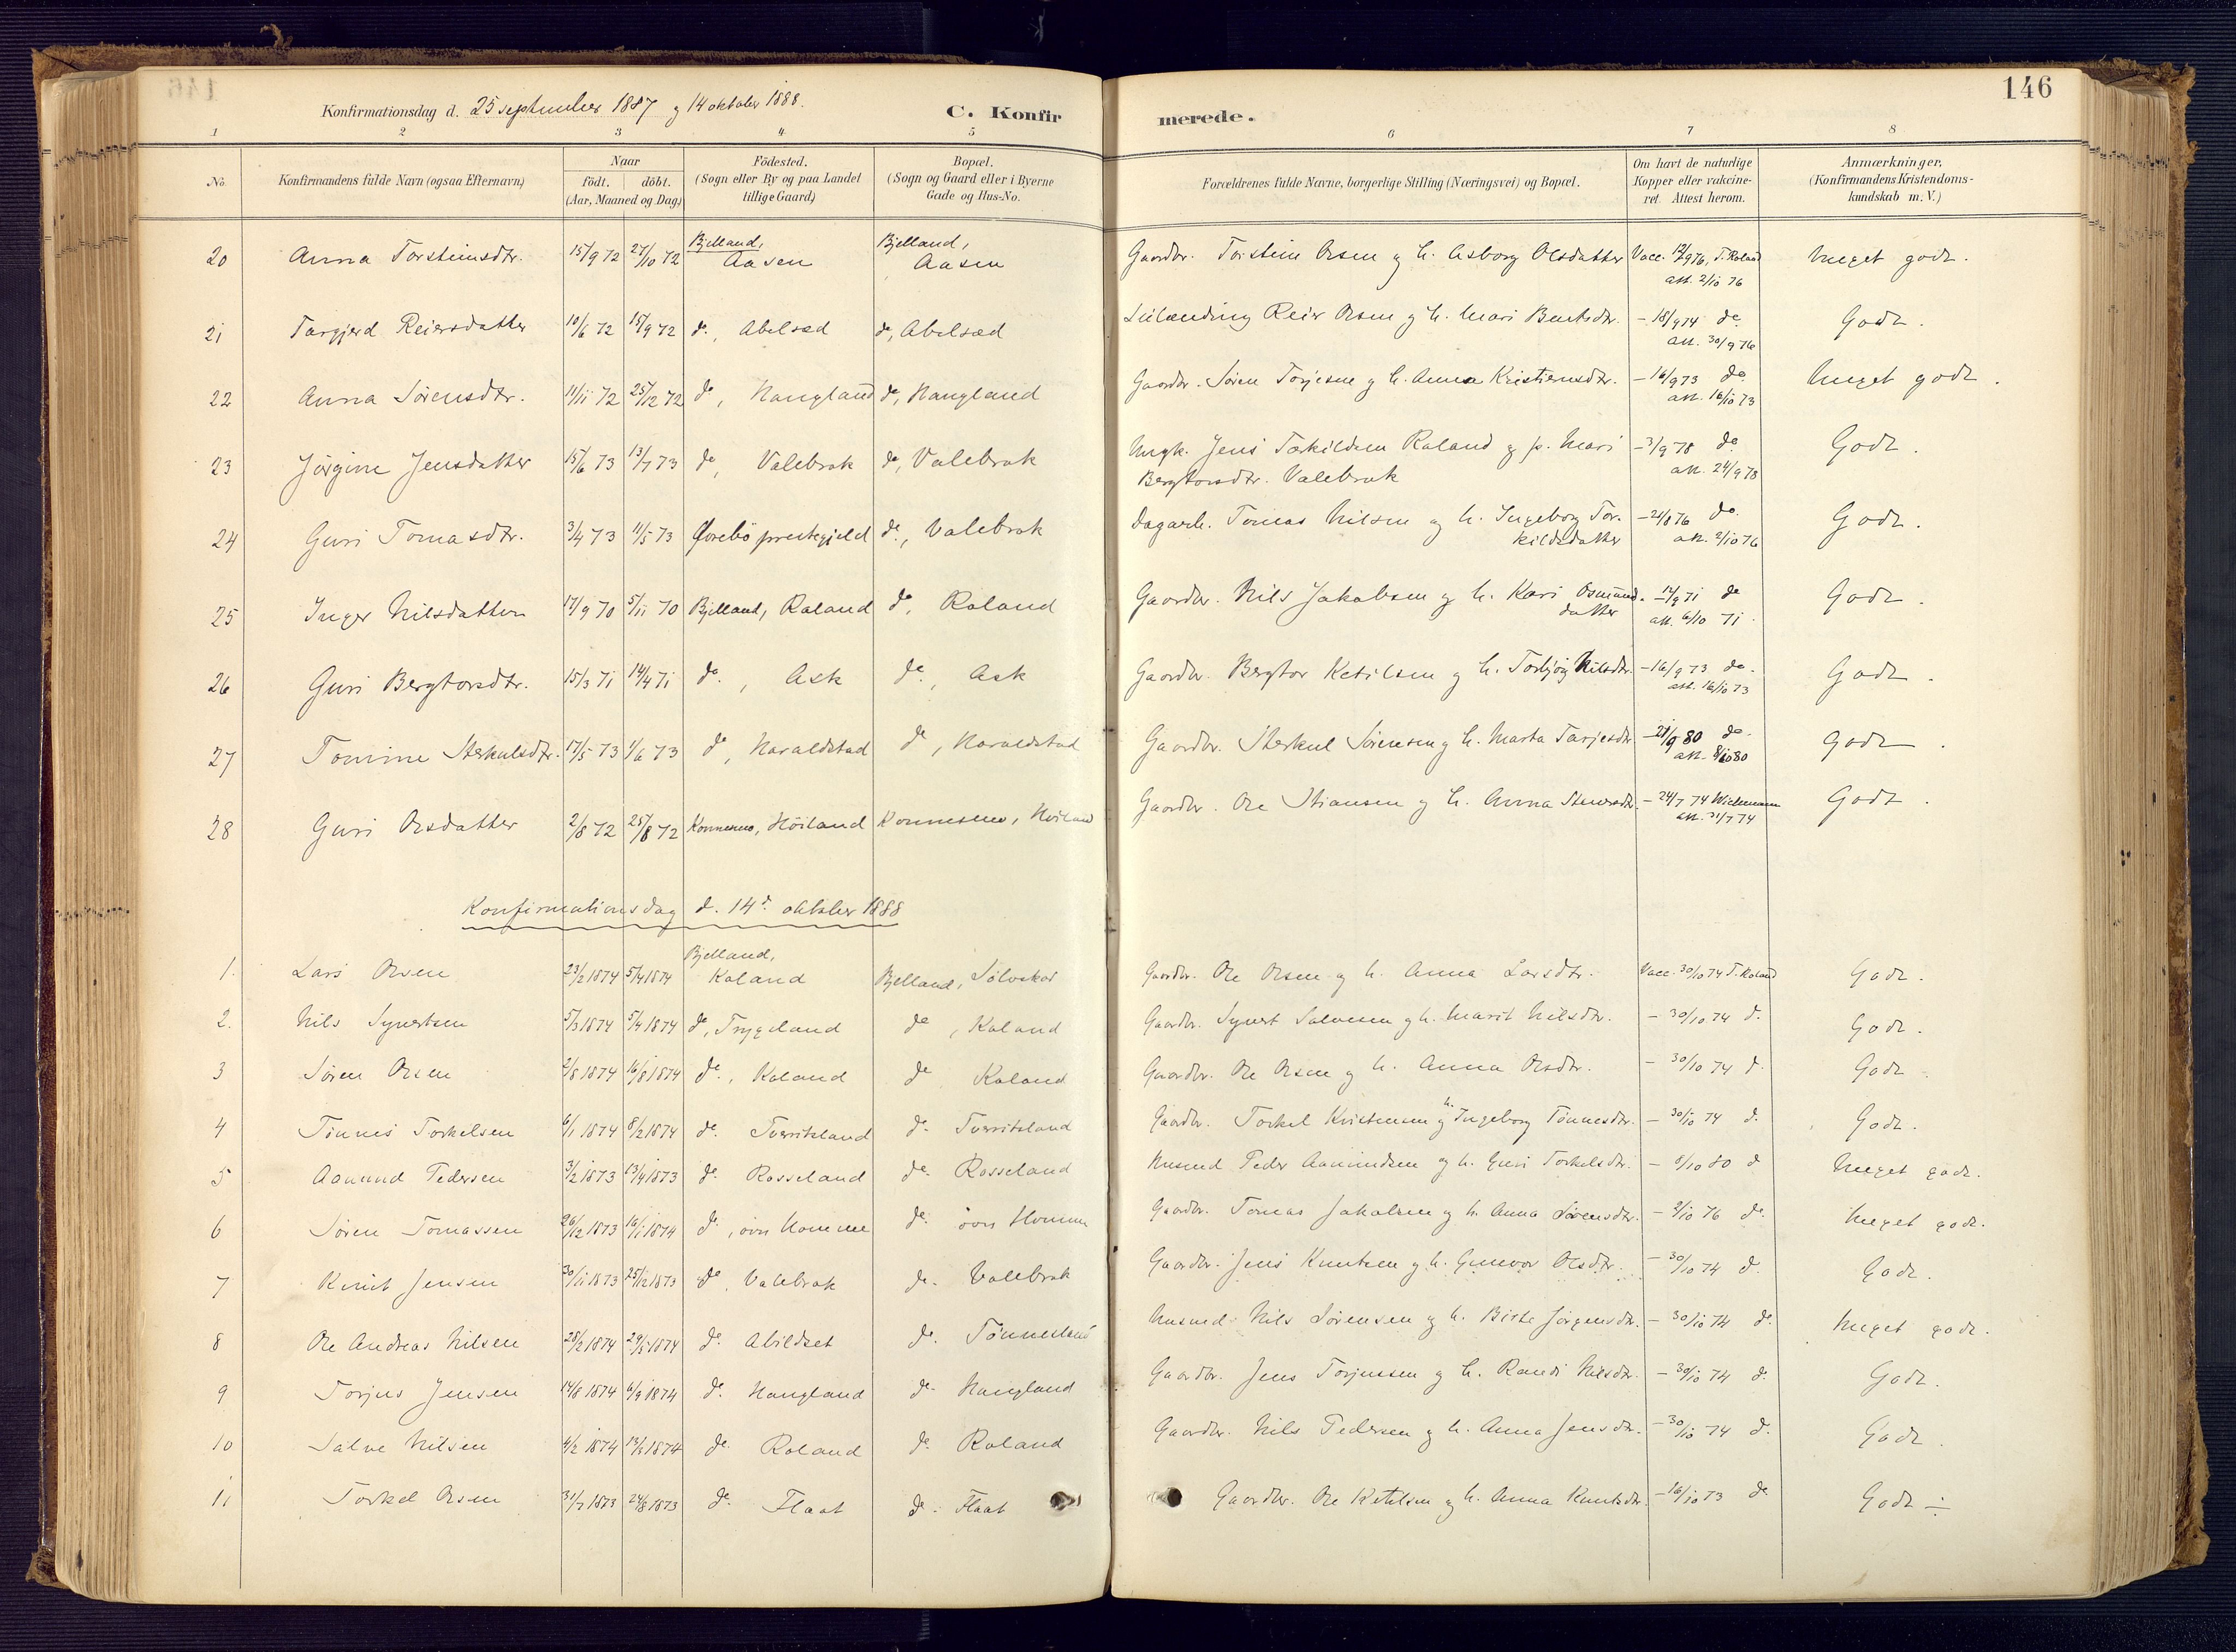 146
Konfirmationsdag d. 25 september 1887 og 14 oktober 1888.
C. Konfirmerede.
1 2 3 4 5 6 7 8
No. Konfirmandens fulde Navn (ogsaa Efternavn) Naar födt. döbt. (Aar, Maaned og Dag) Födested. (Sogn eller By og paa Landet tillige Gaard) Bopæl. (Sogn og Gaard eller i Byerne Gade og Hus-No. Forældrenes fulde Navne, borgerlige Stilling (Næringsvei) og Bopæl. Om havt de naturlige Kopper eller vakcineret. Attest herom. Anmærkninger. (Konfirmandens Kristendomskundskab m. V.)
20 Anna Torsteinsdtr. 15/9 72 27/10 72 Bjelland, Aasen Bjelland, Aasen Gaardbr. Torstein Olsen og h. Asborg Olsdatter Vacc. 12/9 76, T. Roland att. 2/10 76 Meget godt.
21 Targjerd Reiersdatter 10/6 72 15/9 72 do., Abelsæd do, Abelsæd Leilænding Reier Olsen og h. Mari Bentsdtr. – 18/9 74 do. att. 30/9 76 Godt.
22 Anna Sørensdtr. 11/11 72 25/12 72 do, Haugland do, Haugland Gaardbr. Søren Torjesen og h. Anna Kristiensdtr. – 16/9 73 do. att. 16/10 73 Meget godt.
23 Jørgine Jensdatter 15/6 73 13/7 73 do, Valebrok do, Valebrok Ungk. Jens Torkildsen Roland og p. Mari Bergtorsdtr. Valebrok – 3/9 78 do. att. 24/9 78 Godt.
24 Guri Tomasdtr. 3/4 73 11/5 73 Øvrebö prestegjeld do., Valebrok Dagarb. Tomas Nilsen og h. Ingeborg Torkildsdatter – 21/8 76 do. att. 2/10 76 Godt.
25 Inger Nilsdatter 17/9 70 5/11 70 Bjelland, Roland do, Roland Gaardbr. Nils Jakobsen og h. Kari Osmundsdatter – 14/9 71 do att. 6/10 71. Godt.
26 Guri Bergtorsdtr. 15/3 71 14/4 71 do., Ask do., Ask Gaardbr. Bergtor Ketilsen og h. Torbjøg Nilsdtr. – 16/9 73 do. att. 16/10 73 Godt.
27 Tomine Sterkulsdtr. 17/5 73 1/6 73 do, Haraldstad do, Haraldstad Gaardbr. Sterkul Sörensen og h. Marta Tarjesdtr – 21/9 80 do. att. 8/10 80 Godt.
28 Guri Olsdatter 2/8 72 25/8 72 Konnesmo, Höiland Konnesmo, Höiland Gaardbr. Ole Stiansen og h. Anna – 24/7 74 att. 31/7 74 Godt.
Konfirmationsdag d. 14de oktober 1888
1. Lars Olsen 23/2 1874 5/4 1874 Bjelland, Roland Bjelland, Gaardbr. Ole Olsen og h. Anna Larsdtr. Vacc. 30/10 74 T. Roland Godt.
2. Nils Syvertsen 5/3 1874 5/4 1874 do, Trygeland do, Roland Gaardbr. Syvert Salvesen og h. Marit Nilsdtr. – 30/10 74 d. Godt.
3 Søren Olsen 2/8 1874 16/8 1874 do., Roland do Roland Gaardbr. Ole Olsen og h. Anna Olsdtr. – 30/10 74 d. Godt.
4 Tönnes Torkelsen 6/1 1874 8/2 1874 do. Tveritsland do. Tveritsland Gaardbr. Torkel Kristensen og h. Ingeborg Tönnesdtr. – 30/10 74 d. Godt.
5 Aanund Pedersen 3/2 1873 13/4 1873 do. Rosseland do. Rosseland Husmd Peder Aanundsen og h. Guri Torkelsdtr. – 8/10 80 d Meget godt.
6 Søren Tomassen 26/12 1873 16/1 1874 do, övre Homme do. övre Homme Gaardbr. Tomas Jakobsen og h. Anna Sörensdtr. – 2/10 76 do. Meget godt.
7 Knut Jensen 30/11 1873 25/12 1873 do, Valebrok do. Valebrok Gaardbr. Jens Knutsen og h. Gunvor Olsdtr. – 30/10 74 d. Godt.
8 Ole Andreas Nilsen 28/2 1874 29/3 1874 do. Abildset do. Tönnesland Husmd Nils Sörensen og h. Birte Jörgensdtr. – 30/10 74 do. Meget godt.
9 Torjus Jensen 14/8 1874 6/9 1874 do. Haugland do. Haugland Gaardbr. Jens Torjussen og h. Randi Nilsdtr. – 30/10 74 d. Godt.
10 Salve Nilsen 4/2 1874 do. Roland do. Roland Gaardbr. Nils Pedersen og h. Anna Jensdtr. – 30/10 74 d. Godt.
11 Torkel Olsen 31/7 1873 24/8 1873 do. Flaat do. Flaat Gaardbr. Ole Ketilsen og h. Anna Knutsdtr. – 16/10 73 do Godt ÷